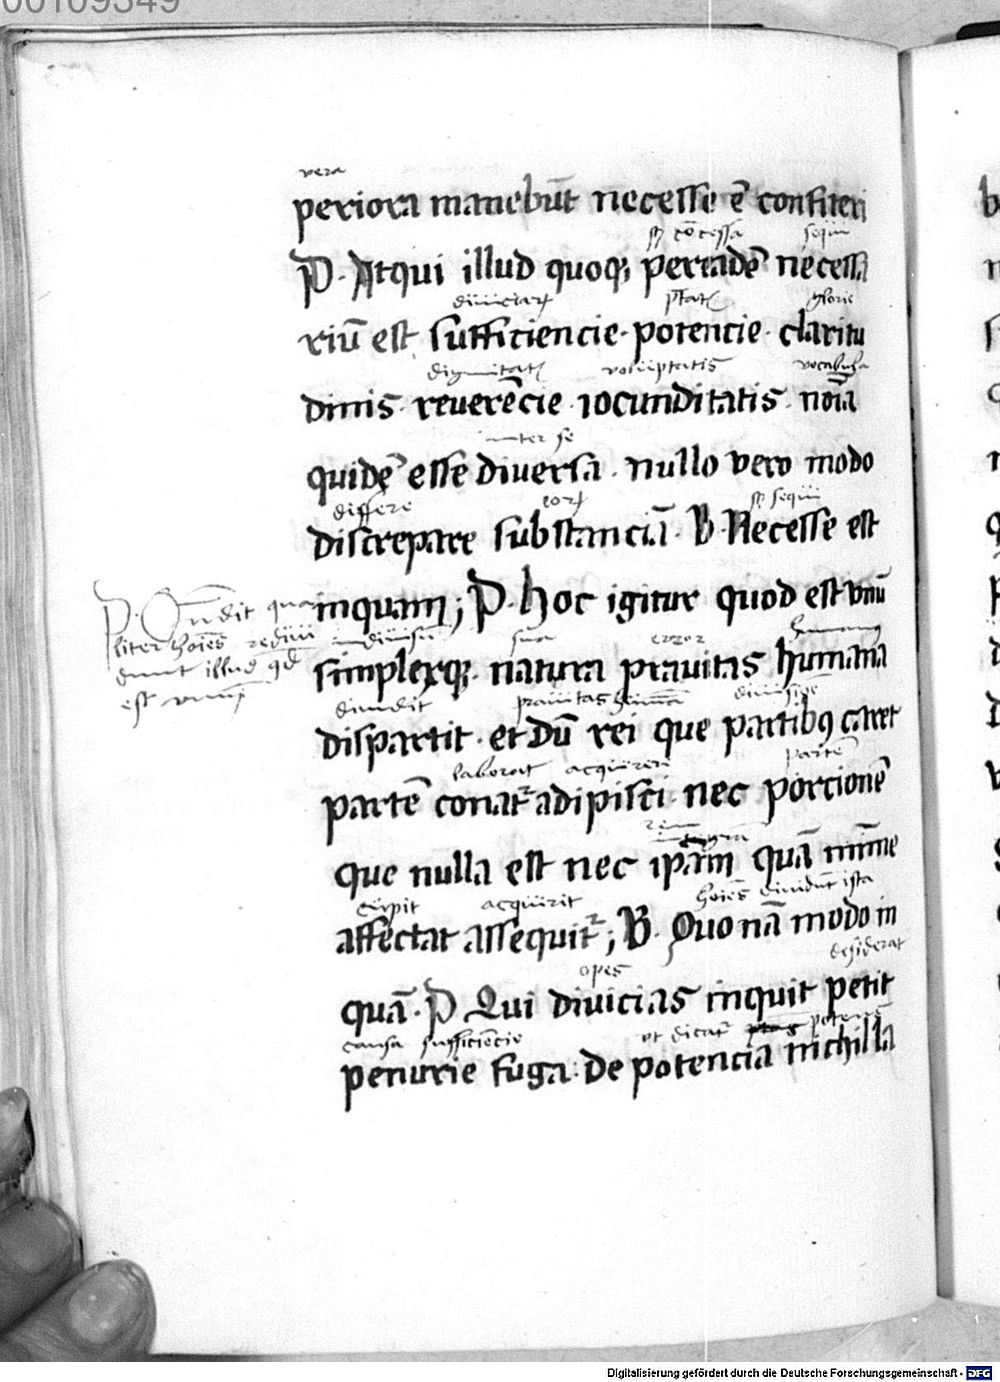 00109349
vera
periora manebūt necesse ē confiteri
cōcessa sequi
P. Atqui illud quoqꝫ per eadē necessa
diuiciarꝝ gloric
riū est sufficiencie · potencie · claritu
dignitatꝭ voluptatis vocabula
dinis · reuerēcie · iocunditatis · noīa
inter se
quidē esse diuersa · nullo vero modo
differe eorꝝ sequi
discrepare substanciā · B · Necesse est
inquam ; P · hoc igitur quod est vnū
indiuisū sua error humana
simplexqꝫ · natura prauitas humana
diuidit prauitas humana diuisione
dispartit · et dū rei que partibꝰ caret
laborat acquirere partē
partē conat᷑ adipisci · nec porcionē
integrā
que nulla est nec ip̄am quā mīme
cupit acquirit hoīes diuidūt ista
affectat assequit᷑ ; B · Quo nā modo in
opes desiderat
quā · P Qui diuicias inquit petit
causa sufficiēcie vt dicat᷑ potens
penurie fuga : de potencia nichil la
P. Ondit qua
liter hoīes rediui
dunt illud qd
est vnum
Digitalisierung gefördert durch die Deutsche Forschungsgemeinschaft - DFG